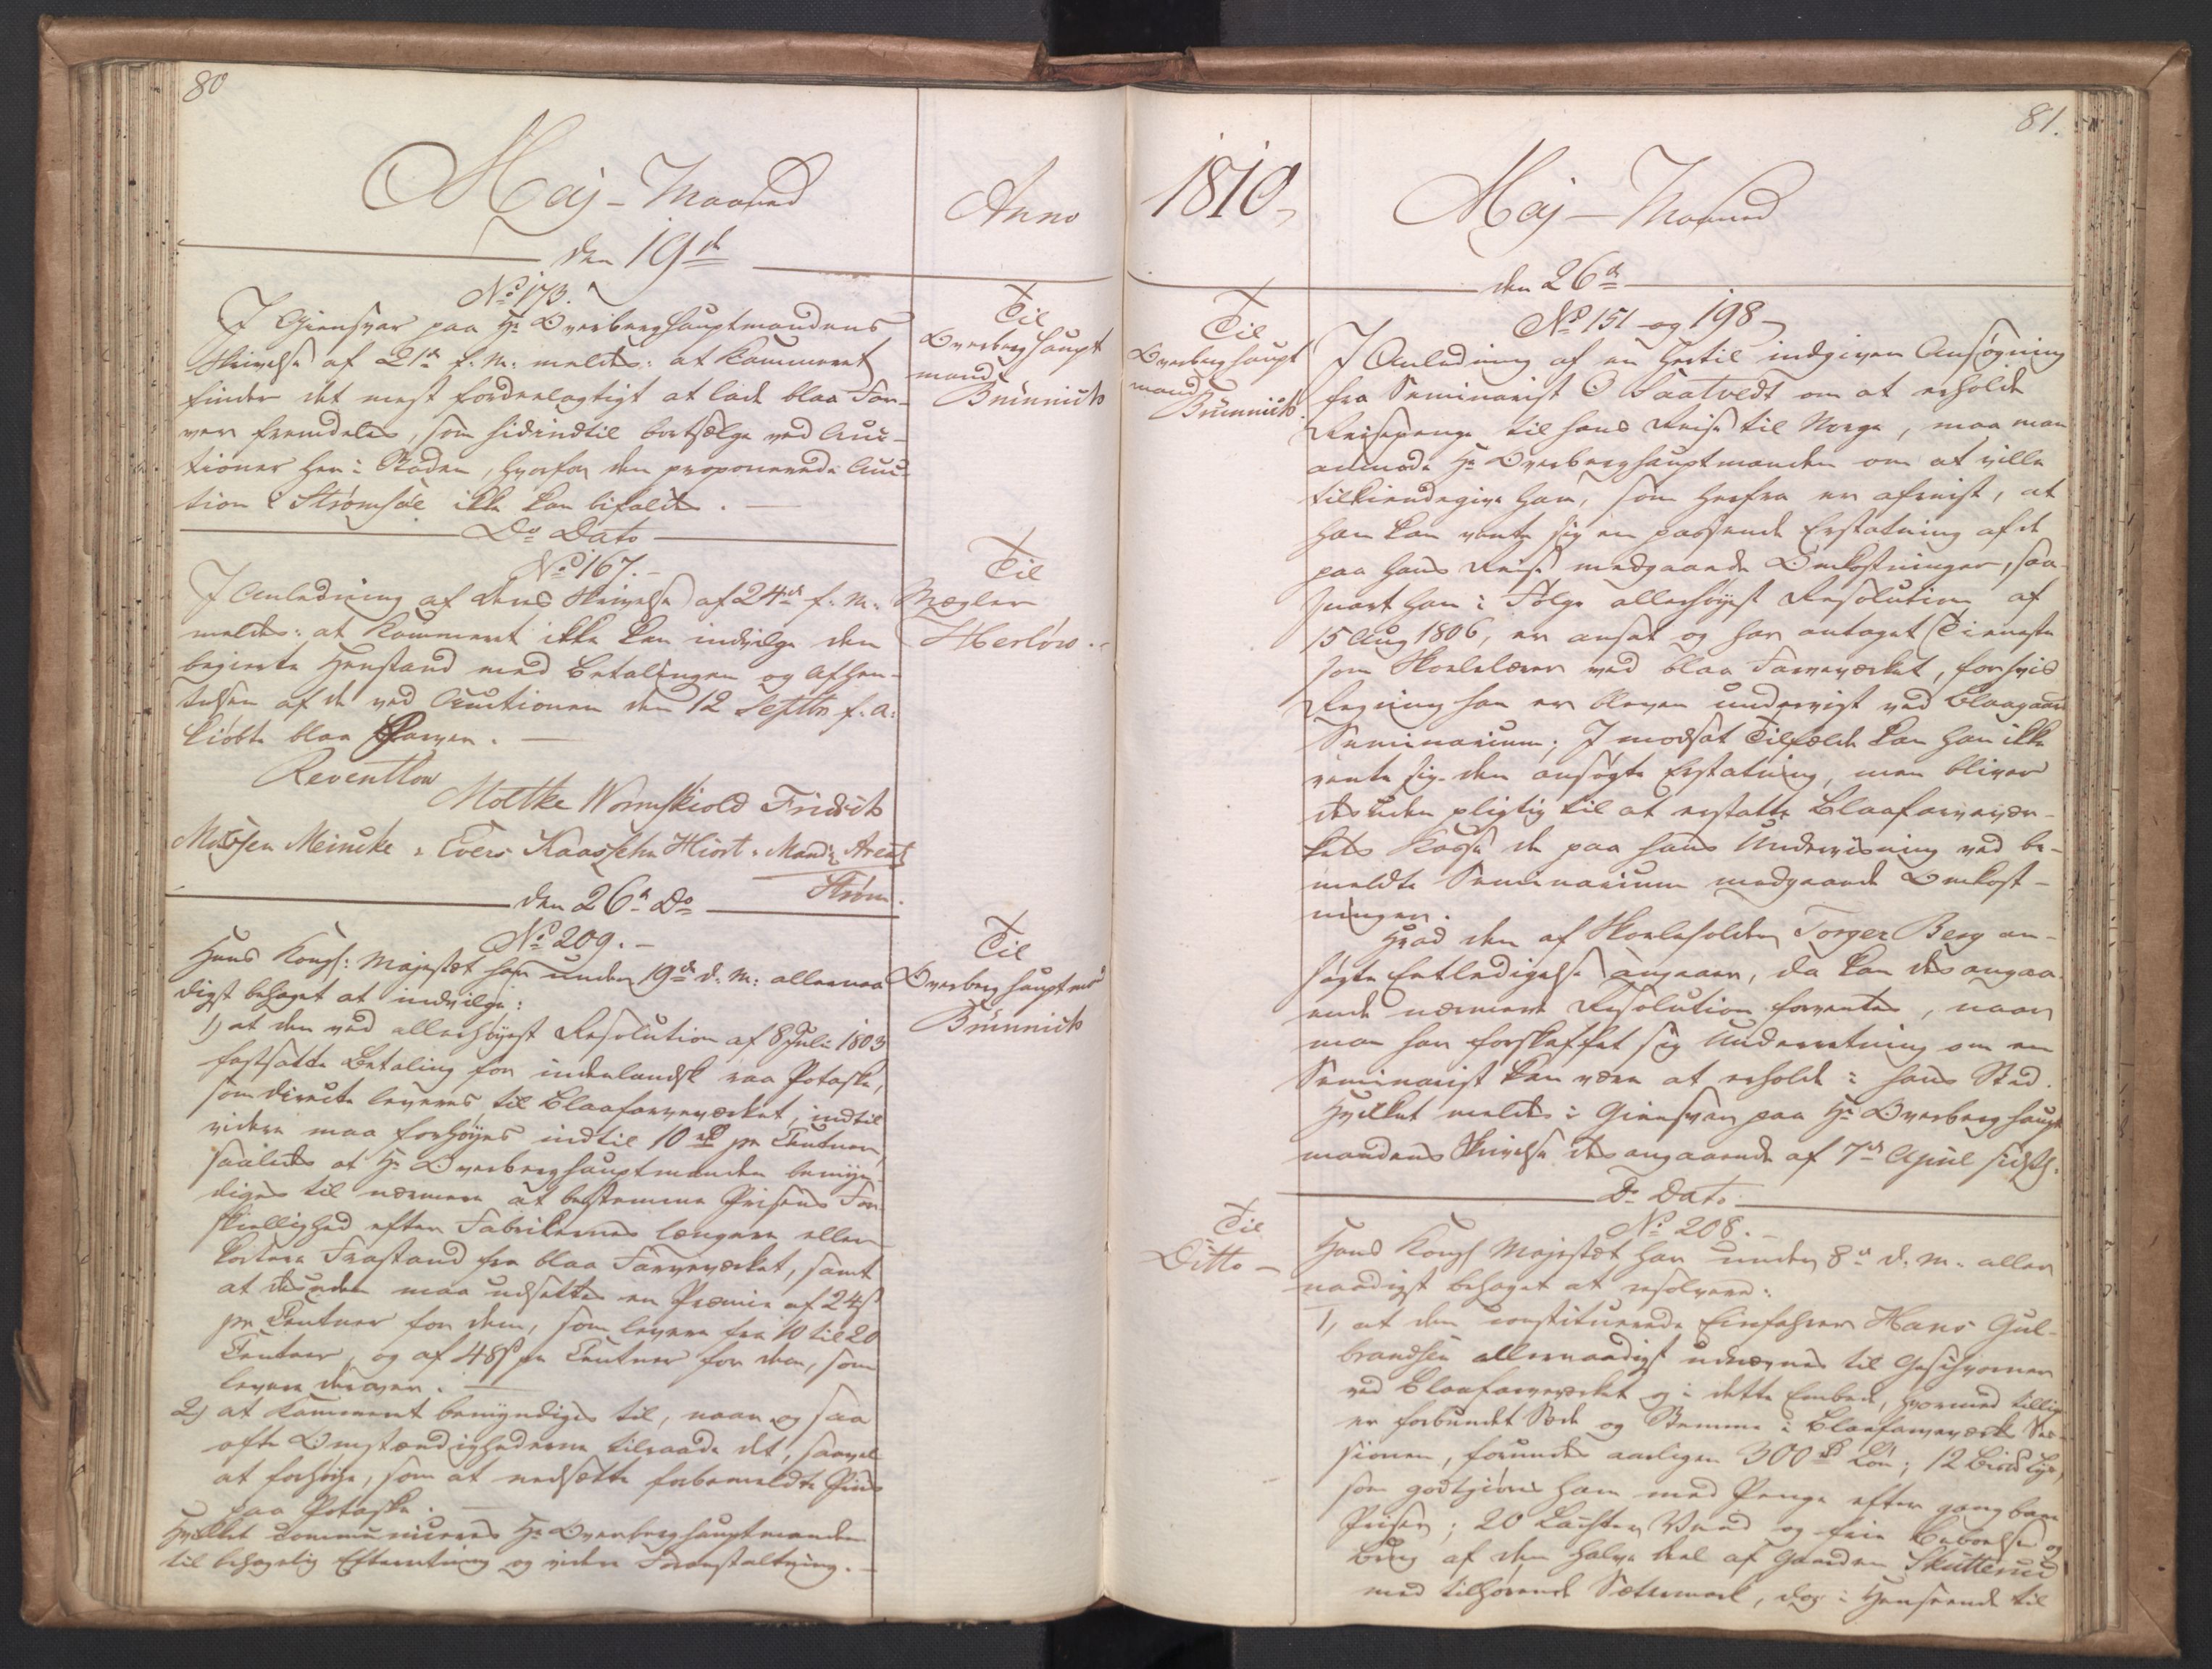 80
Maj - Maaned
Anno
den 19de
No 173.
Til
Overberghaupt
mand
Brünnich
I Giensvar paa Hr Overberghauptmandens
Skrivelse af 21de f. M. meldes: at Kammeret
finder det mest fordeelagtigt at lade blaa Far-
ver fremdeles, som hidindtil bortsælge ved Auc-
tioner her i Staden, hvorfor den proponerede Auc-
tion i Strømsøe ikke kan bifaldes. —
Do Dato
No 167. -
Til
Mægler
Herløw.
I Anledning af Deres Skrivelse af 24de f. M.
meldes: at Kammeret ikke kan indvilge den
begierte Henstand med Betalingen og Afhen-
telsen af de ved Auctionen den 12 Septbr f. A.
kiøbte blaa Farver. —
Reventlow
Moltke Wormskiold Fridsch
Meincke. Evers Kaassehn Hiort. Mandix Arentz
Strøm.
den 26de Do
No 209. -
Til
Overberghauptmd
Brünnich
Hans Kongl: Majestæt har under 19de d. M. allernaa
digst behaget at indvilge:
1) at den ved allerhøyest Resolution af 8 Juli 1803
fastsatte Betaling for indenlandsk raa Potaske,
som directe leveres til Blaafarveværket, indtil
videre maa forhøyes indtil 10 rd pr Centner,
saaledes at Hr Overberghauptmanden bemyn-
diges til nærmere at bestemme Prisens For-
skiellighed efter Fabrikernes længere eller
kortere Frastand fra blaa Farveværket, samt
at desuden maa udsættes en Præmie af 24 s
pr Centner for dem, som levere fra 10 til 20
Centner, og af 48 s pr Centner for dem, som
levere derover. —
2) at Kammeret bemyndiges til, naar og saa
ofte Omstændighederne tilraade det, saavel
at forhøye, som at nedsætte forbemeldte Priis
paa Potaske. —
Hvilket communiceres Hr Overberghauptmanden
til behagelig Efterretning og videre Foranstaltning. -
81.
1810,
Maj - Maaned
den 26de
No 151 og 198
Til
Overberghaupt
mand
Brünnich.
I Anledning af en hertil indgiven Ansøgning
fra Seminarist O Saatvedt om at erholde
Reisepenge til hans Reise til Norge, maa man
anmode Hr Overberghauptmanden om at ville
tilkiendegive ham, som herfra er afreist, at
han kan vente sig en passende Erstatning af de
paa hans Reise medgaaende Omkostninger, saa-
snart han i Følge allerhøyest Resolution af
15 Aug 1806, er ansat og har antaget Tieneste
som Skolelærer ved blaa Farveværket, for hvis
Regning han er bleven underviist ved Blaagaard
Seminarium; I modsat Tilfælde kan han ikke
vente sig den ansøgte Erstatning, men bliver
desuden pligtig til at erstatte Blaafarvevær-
kets Kasse de paa hans Underviisning ved be-
meldte Seminarium medgaaede Omkost-
ninger.
Hvad den af Skoleholder Torger Berg an-
søgte Entledigelse angaaer, da kan desangaa-
ende nærmere Resolution forventes, naar
man har forskaffet sig Underretning om en
Seminarist kan være at erholde i hans Sted.
Hvilket meldes i Giensvar paa Hr Overberghaupt
mandens Skrivelse desangaaende af 7de April sidstl.
Do Dato
No 208. -
Til
Ditto -
Hans Kongl Majestæt har under 8de d. M. aller
naadigst behaget at resolvere:
1) at den constituerede Einfahrer Hans Gul-
brandsen allernaadigst udnævnes til Geschworner
ved Blaafarveværket og i dette Embede, hvormed tillige
er forbundet Sæde og Stemme i Blaafarveværks Ses-
sionen, forundes aarligen 300 rd Løn;
som godtgiøres ham med Penge efter gangbare
Priser; 20 Lachter Veed og frie Beboelse og
Brug af den halve Deel af Gaarden Skutterud
med tilhørende Sætermark, dog i Henseende til